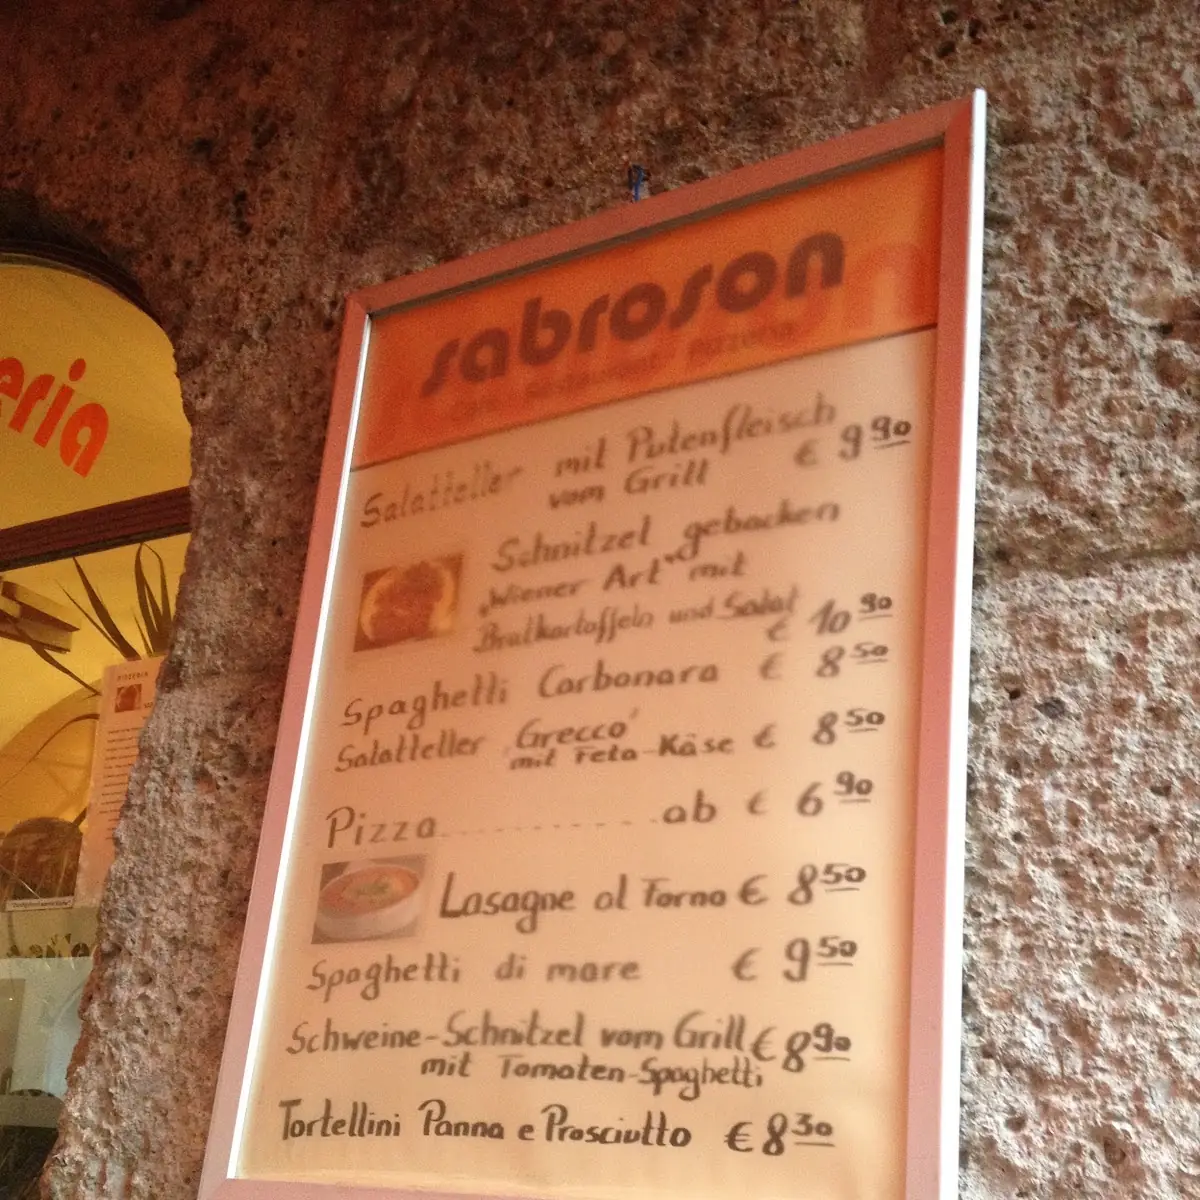 eria
sabroson
Salatteller mit Putenfleisch
vom Grill € 9 90
Schnitzel gebacken
„Wiener Art" mit
Bratkartoffeln und Salat
€ 10 90
Spaghetti Carbonara € 8 50
Salatteller Grecco
mit Feta-Käse € 8 50
Pizza............ab € 6 90
Lasagne al Forno € 8 50
Spaghetti di mare € 9 50
Schweine-Schnitzel vom Grill € 8 90
mit Tomaten-Spaghetti
Tortellini Panna e Prosciutto € 8 30